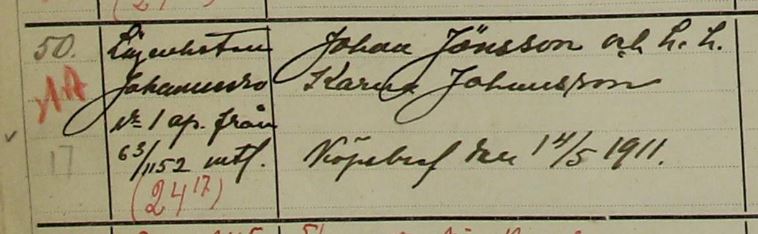 50. Lägenheten Johan Jönsson och h. h.
AA Johannesro Karna Johansson
№ 1 ap. från
17 63/1152 mtl. Köpebref den 14/5 1911.
(24 17)